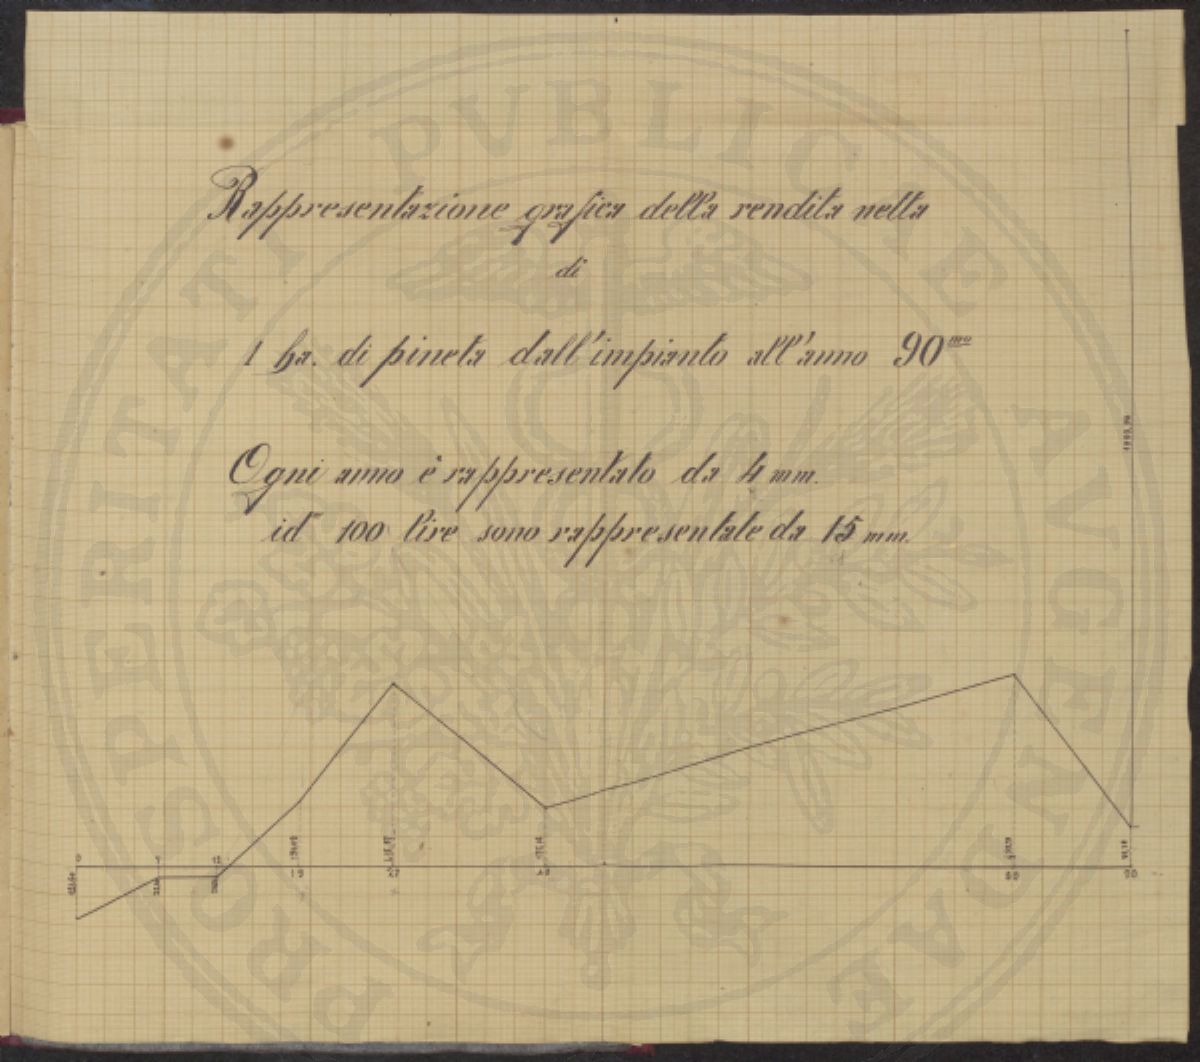 Rappresentazione grafica della rendita netta
di
1 ha. di pineta dall'impianto all'anno 90mo
Ogni anno è rappresentato da 4 mm.
id 100 lire sono rappresentate da 15 mm.
0 7 12
19 27 80 90
PROSPERITATI PUBLICAE AVGENDAE